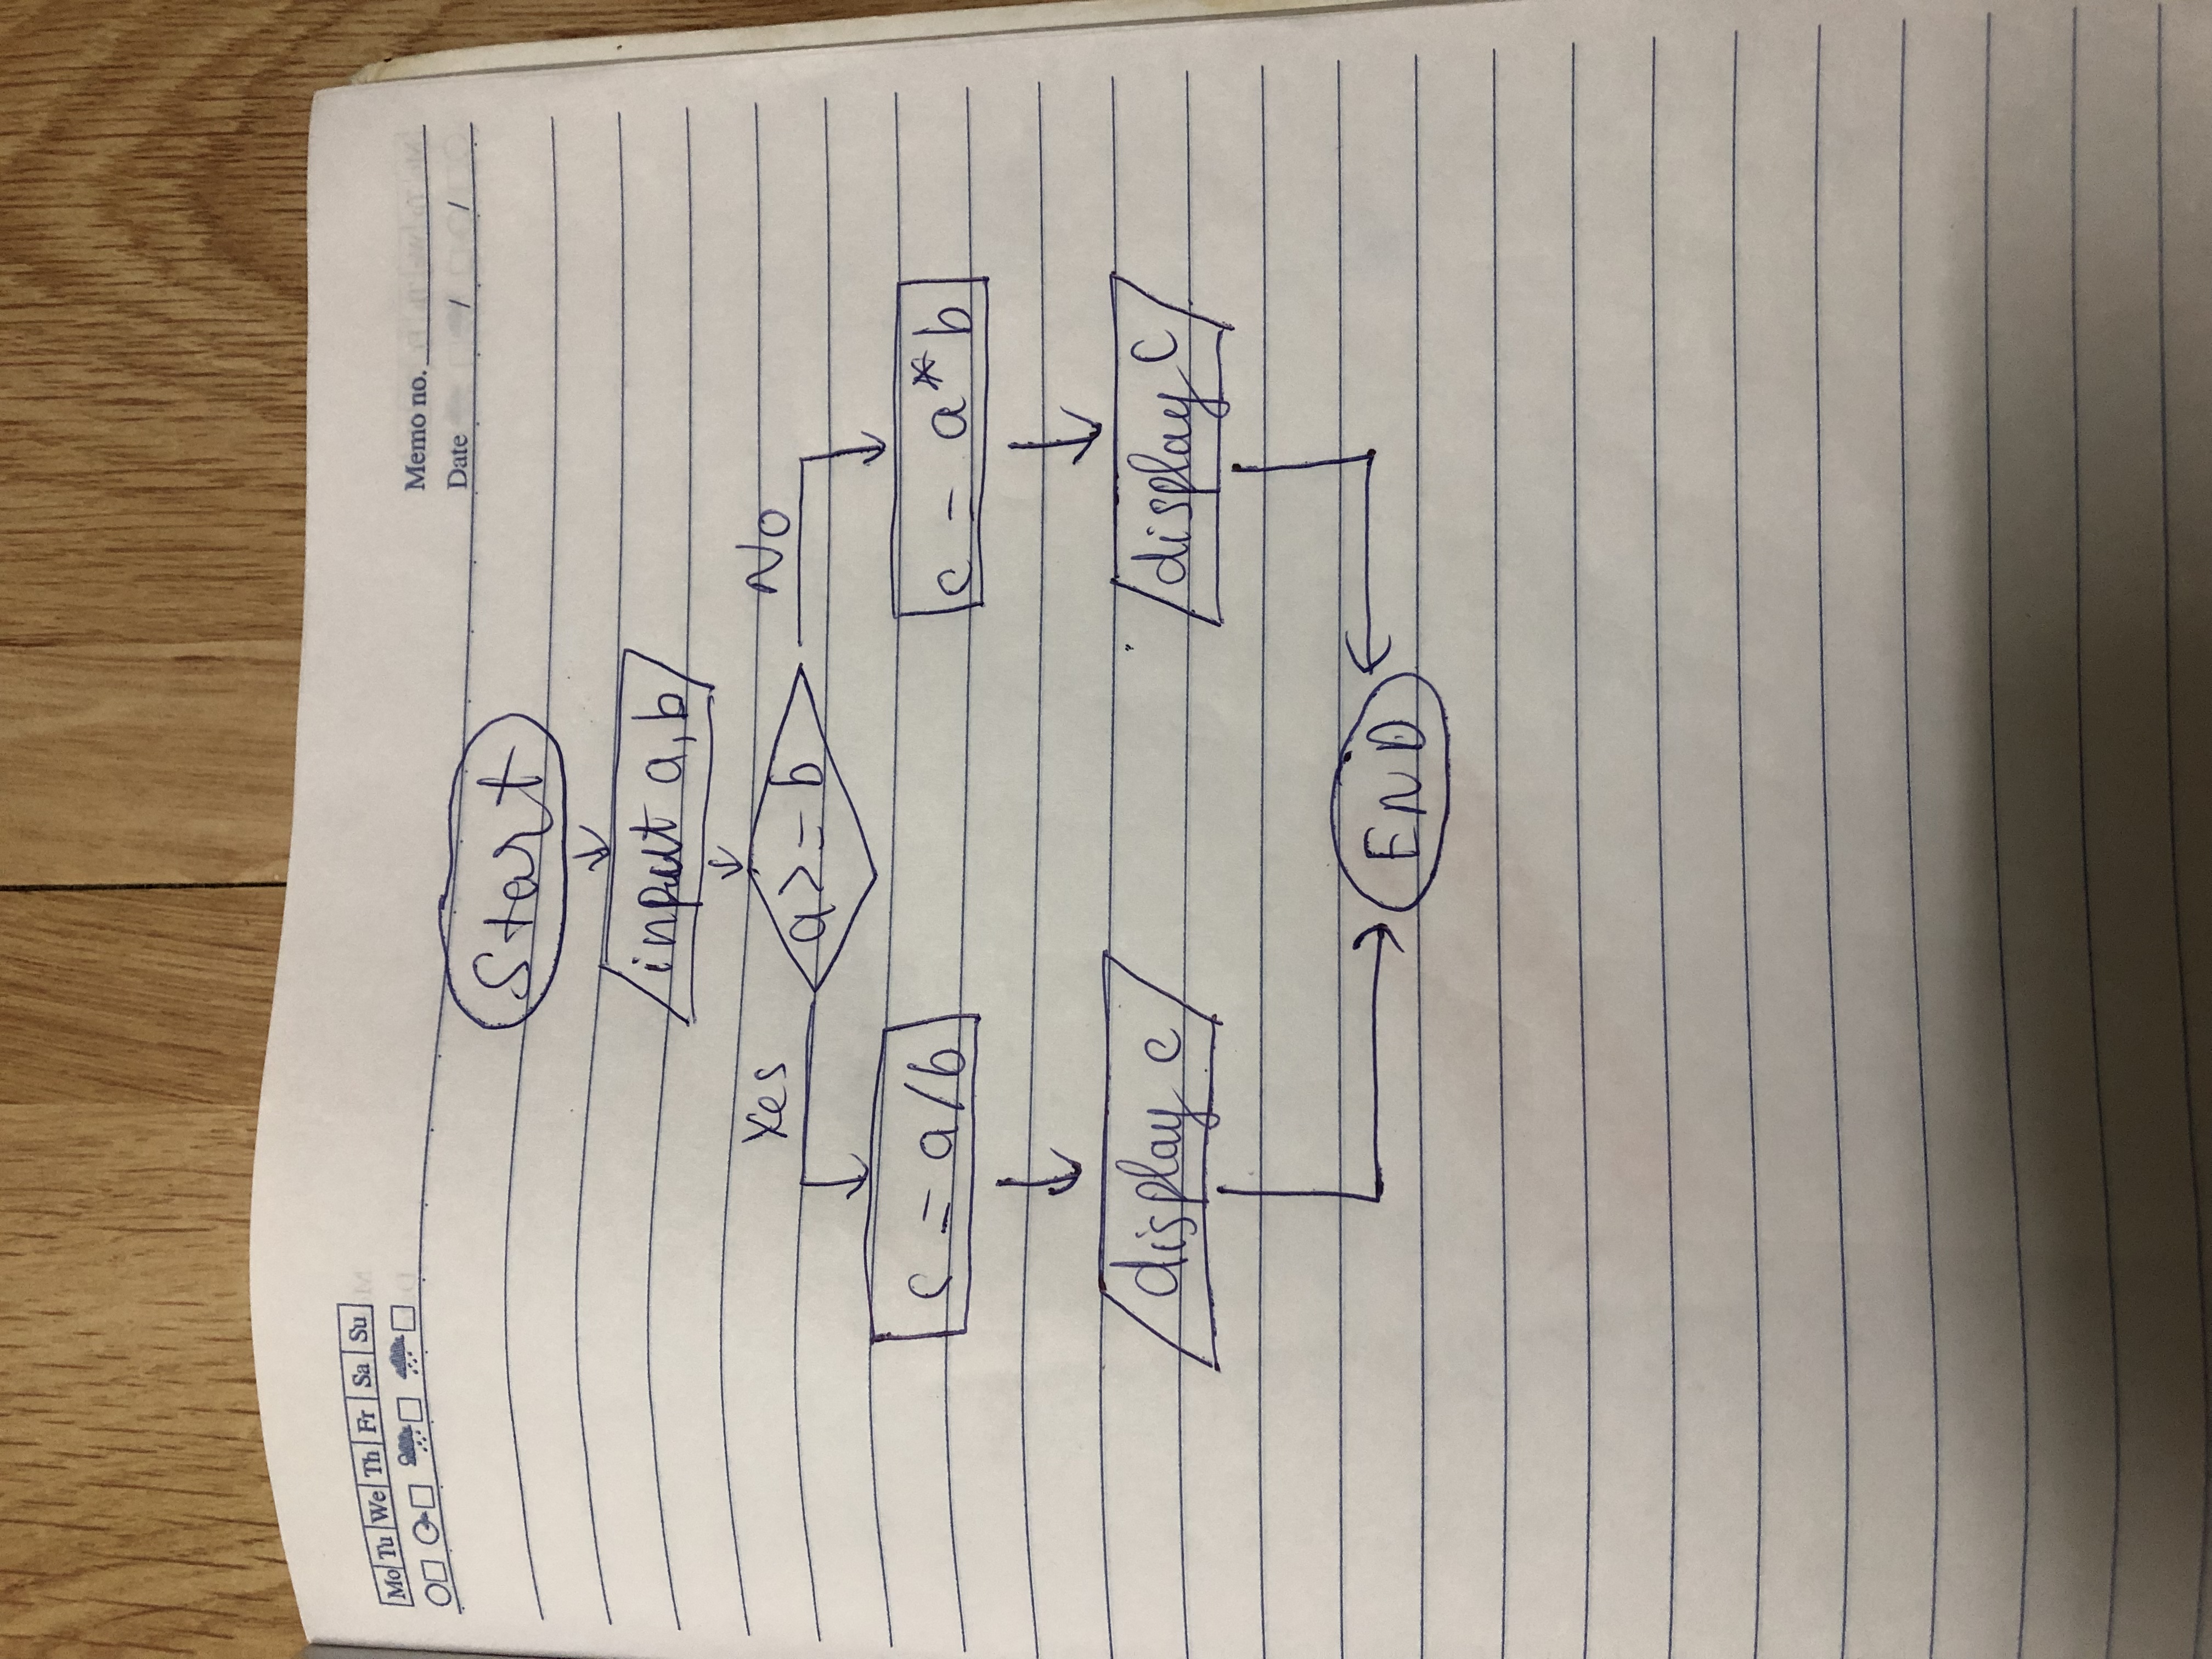 Mo Tu We Th Fr Sa Su
Memo no.
Date / /
Start
input a, b
Yes
a >= b
No
c = a/b
c = a* b
display c
display C
END